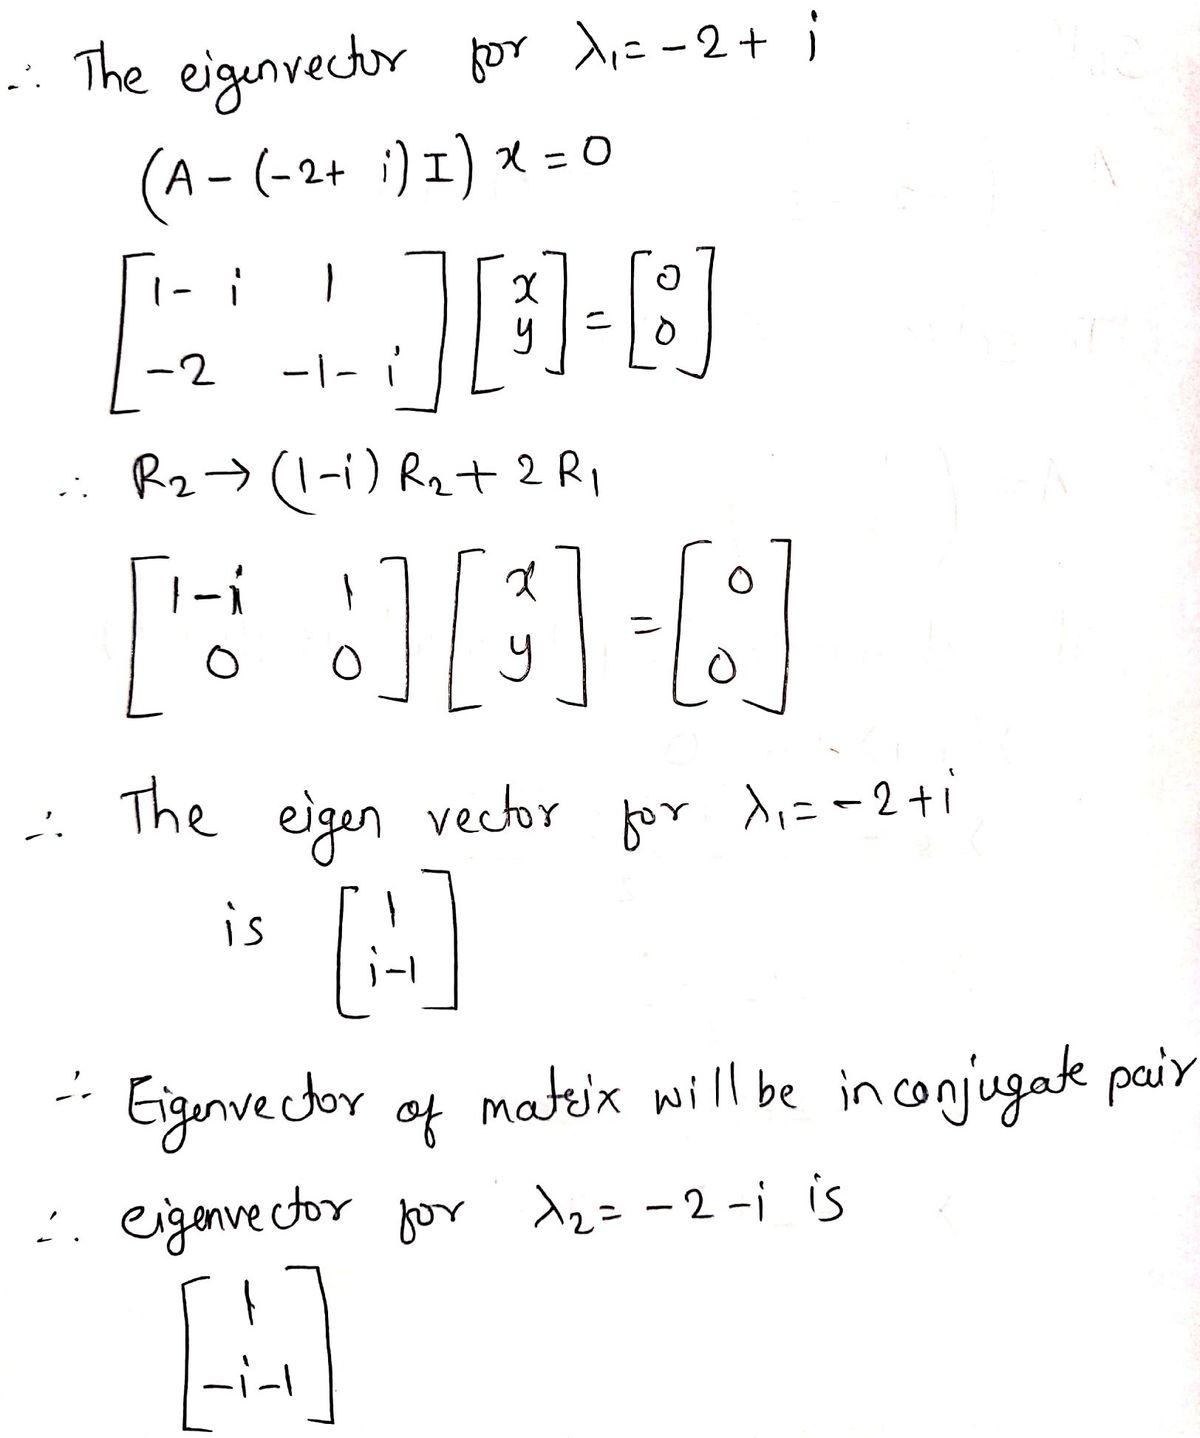 ∴ The eigenvector for λ₁ = -2 + i
(A - (-2 + i) I) x = 0
[1 - i 1; -2 -1 - i] [x; y] = [0; 0]
∴ R₂ → (1-i) R₂ + 2 R₁
[1-i 1; 0 0] [x; y] = [0; 0]
∴ The eigen vector for λ₁ = -2 + i
is [1; i-1]
∴ Eigenvector of matrix will be in conjugate pair
∴ eigenvector for λ₂ = -2 - i is
[1; -i-1]